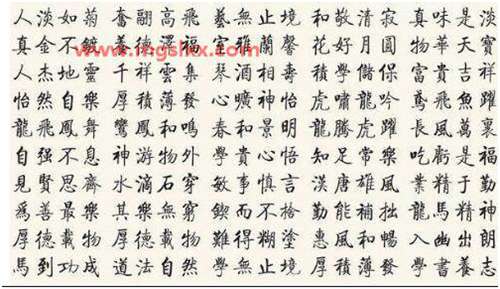 人淡如菊 奮翮高飛 藝無止境 和敬清寂 真味是淡
真金不鍍 養德澤福 室雅蘭馨 花好月圓 物華天寶
人杰地靈 千祥雲集 琴酒 壽 學儲保 富貴吉祥
怡然自樂 厚積薄發 心曠神怡 虎嘯龍吟 鳶飛魚躍
龍飛鳳舞 鸞鳳和鳴 春和景明 龍騰虎躍 長風萬裏
自强不息 神游物外 學貴心悟 知足常樂 吃虧是福
見賢思齊 水滴石穿 敏事慎言 漢唐雄風 業精于勤
爲善最樂 其樂無窮 鍥而不捨 勤能補拙 龍馬精神
厚德載物 厚德載物 難得糊塗 惠風和暢 入幽出朗
馬到功成 道法自然 學無止境 厚積薄發 學書養志